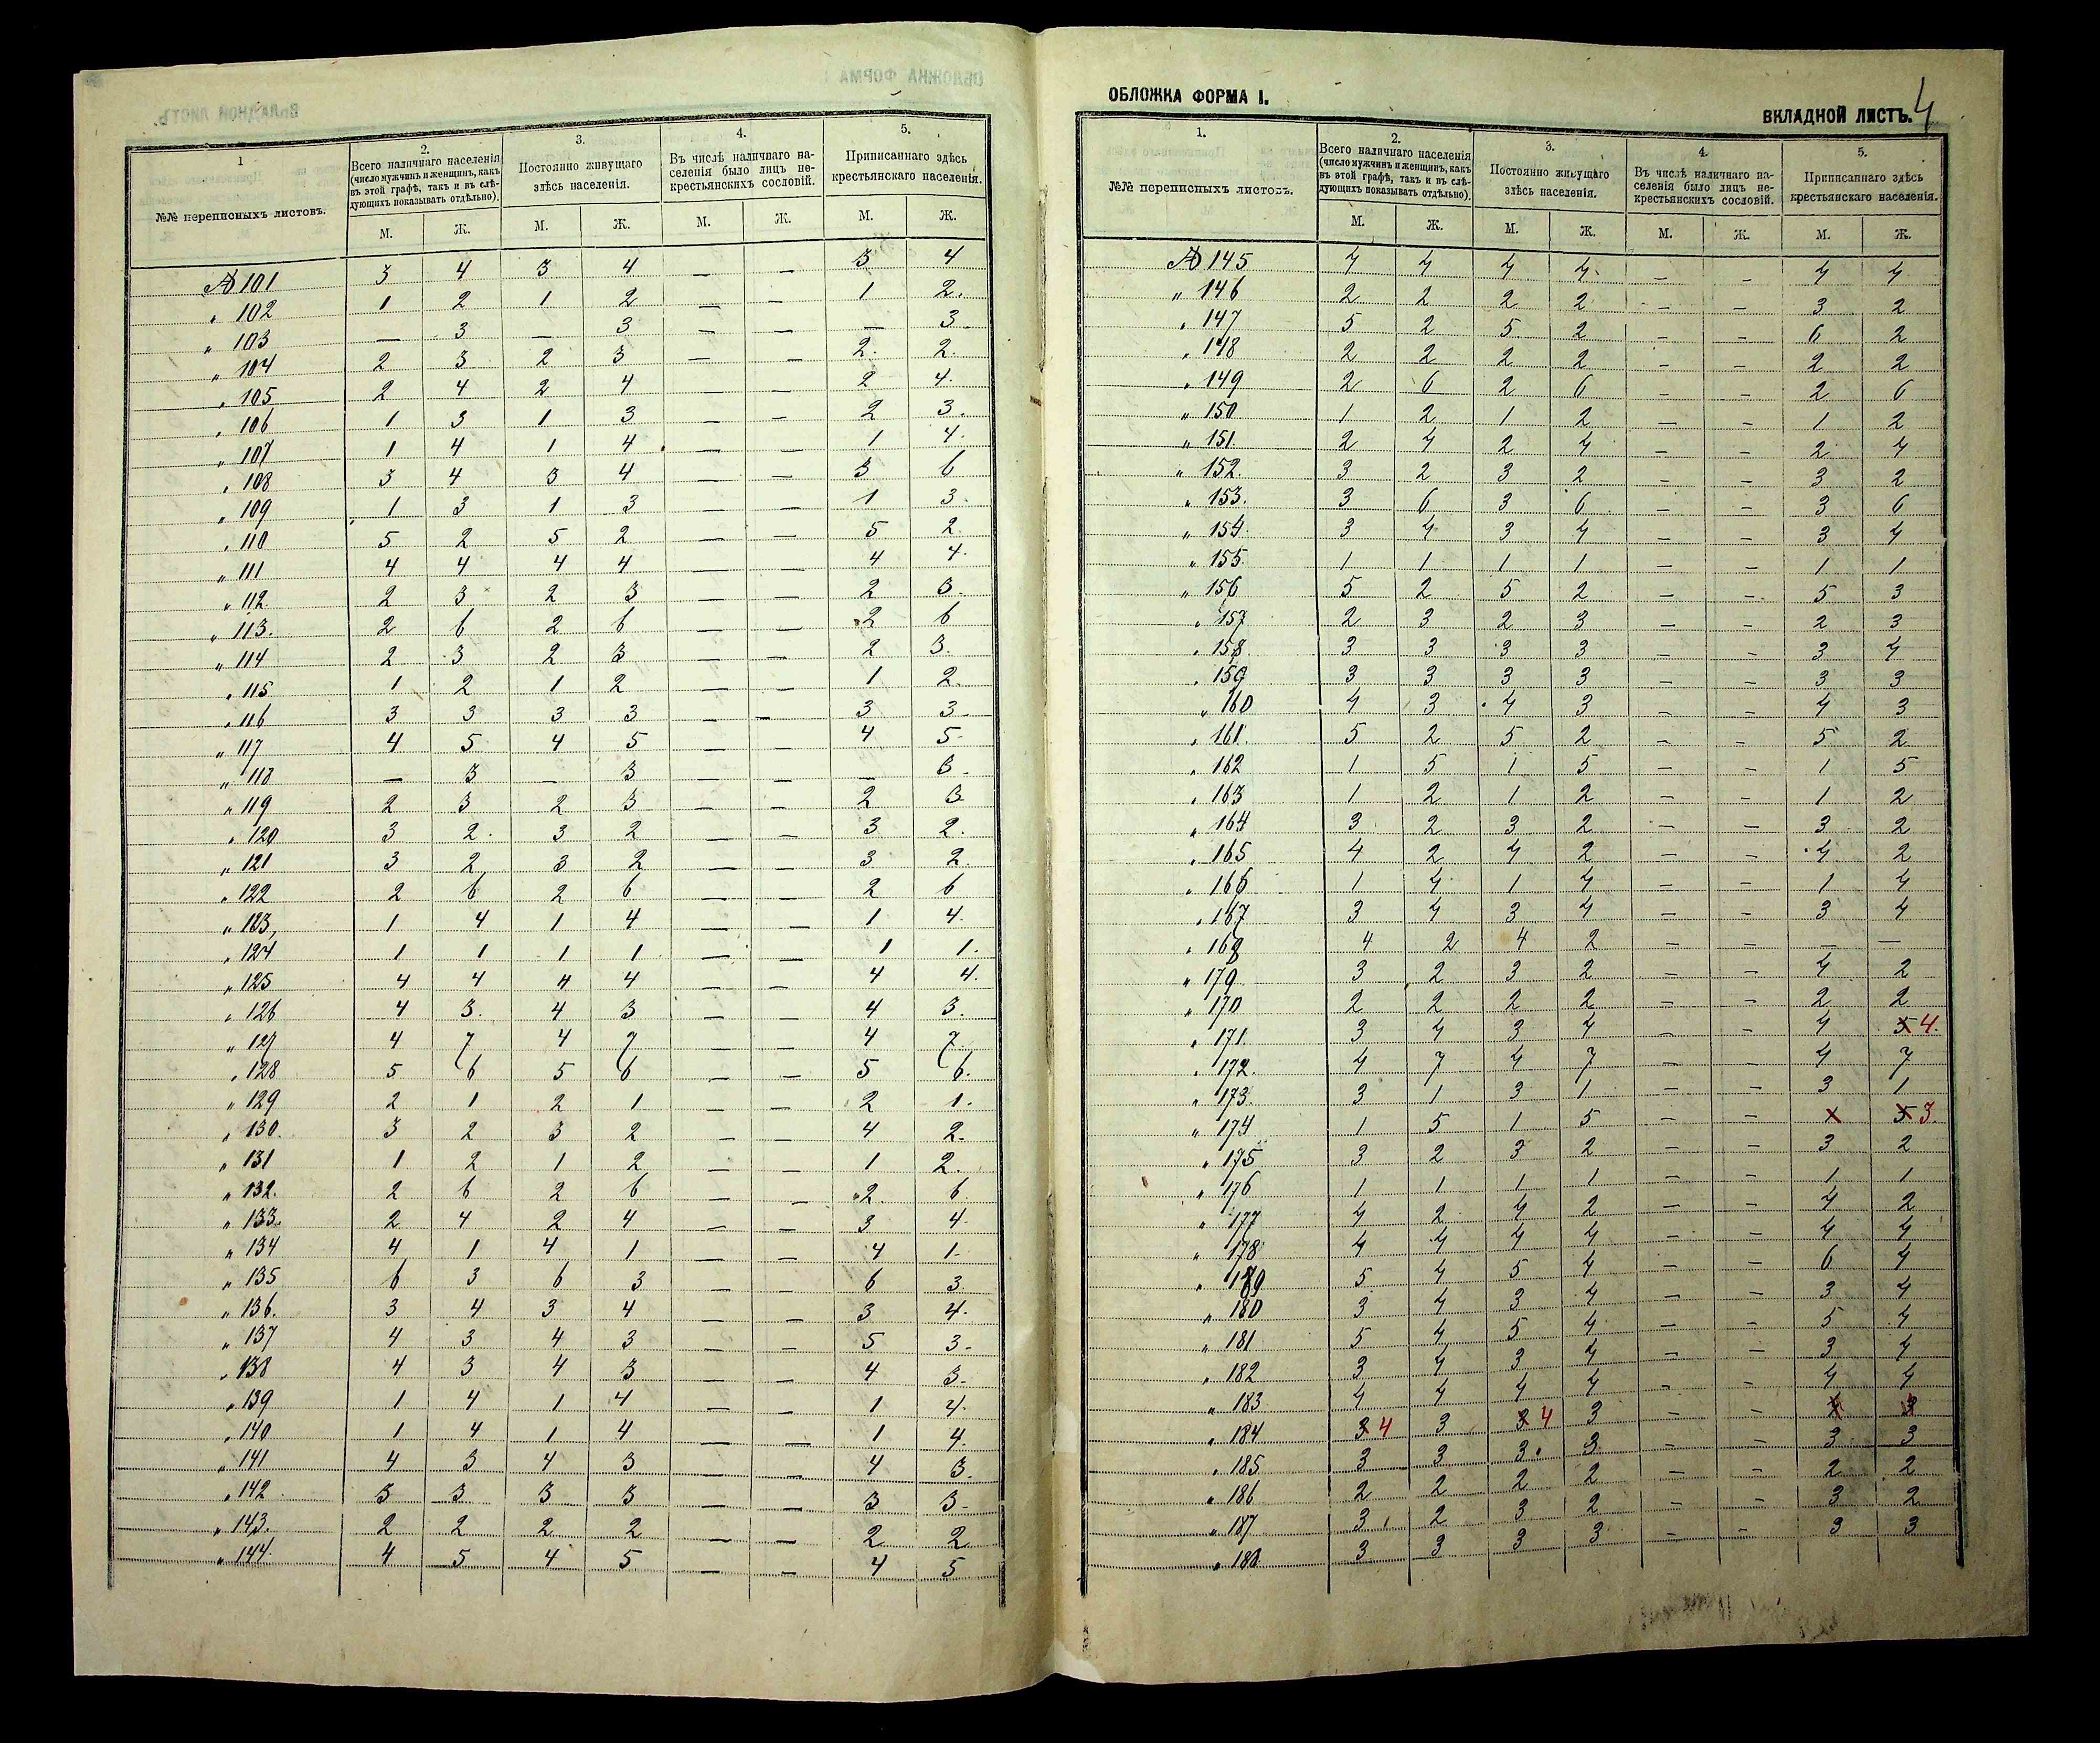 1
№№ переписныхъ листовъ.
2.
Всего наличнаго населенія
(число мужчинъ и женщинъ, какъ
въ этой графѣ, такъ и въ слѣ-
дующихъ показывать отдѣльно).
3.
Постоянно живущаго
здѣсь населенія.
4.
Въ числѣ наличнаго на-
селенія было лицъ не-
крестьянскихъ сословій.
5.
Приписаннаго здѣсь
крестьянскаго населенія.
М. Ж. М. Ж. М. Ж. М. Ж.
№ 101 3 4 3 4 — — 3 4
" 102 1 2 1 2 — — 1 2.
" 103 — 3 — 3 — — — 3
" 104 2 3 2 3 — — 2. 2.
" 105 2 4 2 4 — — 2 4.
" 106 1 3 1 3 — — 2 3.
" 107 1 4 1 4 — — 1 4.
" 108 3 4 3 4 — — 3 6
" 109 1 3 1 3 — — 1 3.
" 110 5 2 5 2 — — 5 2
" 111 4 4 4 4 — — 4 4.
" 112. 2 3 2 3 — — 2 3.
" 113. 2 6 2 6 — — 2 6
" 114 2 3 2 3 — — 2 3.
" 115 1 2 1 2 — — 1 2.
" 116 3 3 3 3 — — 3 3
" 117 4 5 4 5 — — 4 5
" 118 — 3 — 3 — — — 3
" 119 2 3 2 3 — — 2 3
" 120 3 2. 3 2 — — 3 2.
" 121 3 2 3 2 — — 3 2.
" 122 2 6 2 6 — — 2 6
" 123, 1 4 1 4 — — 1 4.
" 124 1 1 1 1 — — 1 1.
" 125 4 4 4 4 — — 4 4.
" 126 4 3. 4 3 — — 4 3.
" 127 4 7 4 7 — — 4 7
" 128 5 6 5 6 — — 5 6.
" 129 2 1 2 1 — — 2 1.
" 130. 3 2 3 2 — — 4 2.
" 131 1 2 1 2 — — 1 2.
" 132. 2 6 2 6 — — 2. 6
" 133. 2 4 2 4 — — 3 4.
" 134 4 1 4 1 — — 4 1.
" 135 6 3 6 3 — — 6 3
" 136. 3 4 3 4 — — 3 4.
" 137 4 3 4 3 — — 5 3
" 138 4 3 4 3 — — 4 3.
" 139 1 4 1 4 — — 1 4.
" 140 1 4 1 4 — — 1 4.
" 141 4 3 4 3 — — 4 3.
" 142 3 3 3 3 — — 3 3
" 143. 2 2 2 2 — — 2 2
" 144. 4 5 4 5 — — 4 5
ОБЛОЖКА ФОРМА I.
ВКЛАДНОЙ ЛИСТЪ. 4
1.
№№ переписныхъ листовъ.
2.
Всего наличнаго населенія
(число мужчинъ и женщинъ, какъ
въ этой графѣ, такъ и въ слѣ-
дующихъ показывать отдѣльно).
3.
Постоянно живущаго
здѣсь населенія.
4.
Въ числѣ наличнаго на-
селенія было лицъ не-
крестьянскихъ сословій.
5.
Приписаннаго здѣсь
крестьянскаго населенія.
М. Ж. М. Ж. М. Ж. М. Ж.
№ 145 4 4 4 4 — — 4 4
" 146 2 2 2 2 — — 3 2
" 147 5 2 5 2 — — 6 2
" 148 2 2 2 2 — — 2 2
" 149 2 6 2 6 — — 2 6
" 150 1 2 1 2 — — 1 2
" 151. 2 4 2 4 — — 2 4
" 152. 3 2 3 2 — — 3 2
" 153. 3 6 3 6 — — 3 6
" 154. 3 4 3 4 — — 3 4
" 155. 1 1 1 1 — — 1 1
" 156 5 2 5 2 — — 5 3
" 157 2 3 2 3 — — 2 3
" 158 3 3 3 3 — — 3 4
" 159 3 3 3 3 — — 3 3
" 160 4 3 4 3 — — 4 3
" 161. 5 2 5 2 — — 5 2
" 162 1 5 1 5 — — 1 5
" 163 1 2 1 2 — — 1 2
" 164 3 2 3 2 — — 3 2
" 165 4 2 4 2 — — 4 2
" 166 1 4 1 4 — — 1 4
" 167 3 4 3 4 — — 3 4
" 168 4 2 4 2 — — — —
" 179 3 2 3 2 — — 4 2
" 170 2 2 2 2 — — 2 2
" 171. 3 4 3 4 — — 4 5 4.
" 172. 4 7 4 7 — — 4 7
" 173. 3 1 3 1 — — 3 1
" 174 1 5 1 5 — — 5 3.
" 175 3 2 3 2 — — 3 2
" 176 1 1 1 1 — — 1 1
" 177 4 2 4 2 — — 4 2
" 178 4 4 4 4 — — 4 4
" 179 5 4 5 4 — — 6 4
" 180 3 4 3 4 — — 3 4
" 181 5 4 5 4 — — 5 4
" 182 3 4 3 4 — — 3 4
" 183 4 4 4 4 — — 4 4
" 184 3 4 3 3 4 3 — —
" 185. 3 3 3 3 — — 3 3
" 186 2 2 2 2 — — 2 2
" 187 3 2 3 2 — — 3 2
" 188. 3 3 3 3 — — 3 3